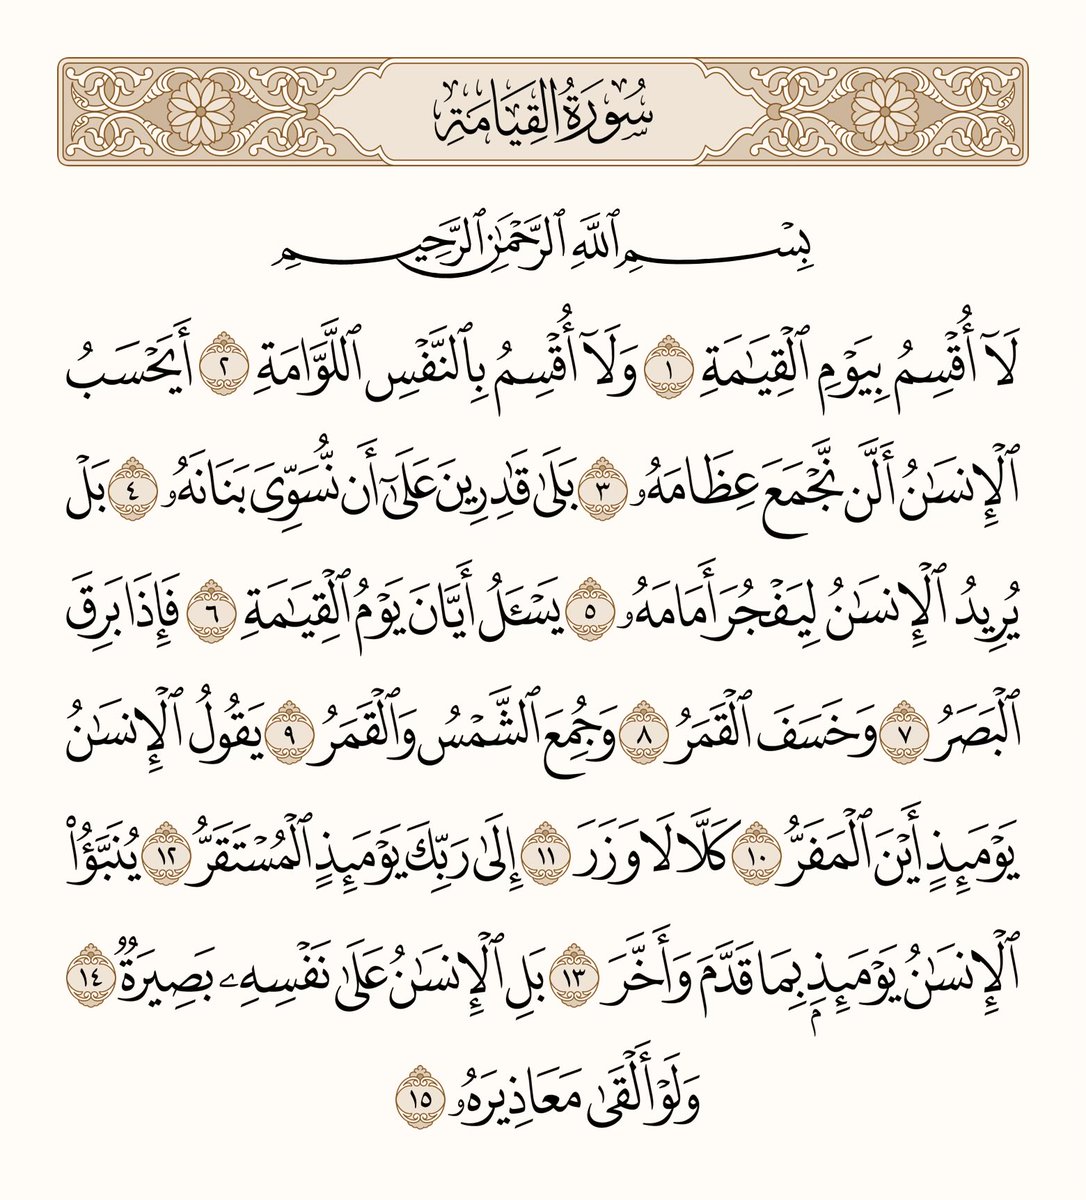 سُورَةُ القِيَامَةِ
بِسۡمِ ٱللَّهِ ٱلرَّحۡمَٰنِ ٱلرَّحِيمِ
لَآ أُقۡسِمُ بِيَوۡمِ ٱلۡقِيَٰمَةِ ١ وَلَآ أُقۡسِمُ بِٱلنَّفۡسِ ٱللَّوَّامَةِ ٢ أَيَحۡسَبُ
ٱلۡإِنسَٰنُ أَلَّن نَّجۡمَعَ عِظَامَهُۥ ٣ بَلَىٰ قَٰدِرِينَ عَلَىٰٓ أَن نُّسَوِّيَ بَنَانَهُۥ ٤ بَلۡ
يُرِيدُ ٱلۡإِنسَٰنُ لِيَفۡجُرَ أَمَامَهُۥ ٥ يَسۡـَٔلُ أَيَّانَ يَوۡمُ ٱلۡقِيَٰمَةِ ٦ فَإِذَا بَرِقَ
ٱلۡبَصَرُ ٧ وَخَسَفَ ٱلۡقَمَرُ ٨ وَجُمِعَ ٱلشَّمۡسُ وَٱلۡقَمَرُ ٩ يَقُولُ ٱلۡإِنسَٰنُ
يَوۡمَئِذٍ أَيۡنَ ٱلۡمَفَرُّ ١٠ كَلَّا لَا وَزَرَ ١١ إِلَىٰ رَبِّكَ يَوۡمَئِذٍ ٱلۡمُسۡتَقَرُّ ١٢ يُنَبَّؤُاْ
ٱلۡإِنسَٰنُ يَوۡمَئِذِۭ بِمَا قَدَّمَ وَأَخَّرَ ١٣ بَلِ ٱلۡإِنسَٰنُ عَلَىٰ نَفۡسِهِۦ بَصِيرَةٞ ١٤
وَلَوۡ أَلۡقَىٰ مَعَاذِيرَهُۥ ١٥